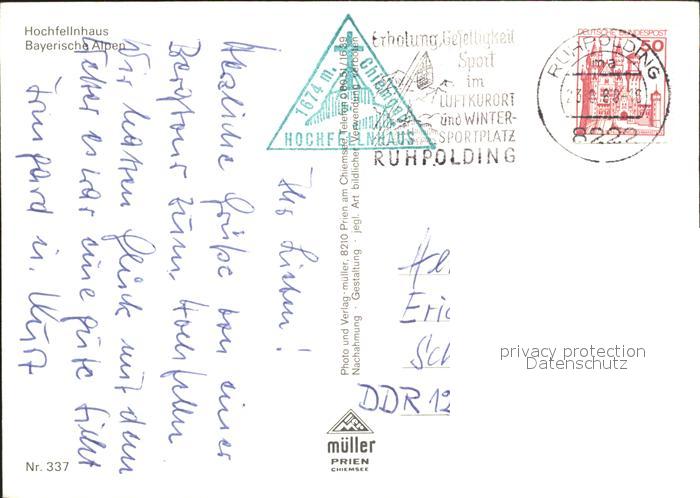 Hochfellnhaus
Bayerische Alpen
1674 m.
Chiemgau
HOCHFELLNHAUS
Erholung, Geselligkeit
Sport
im
LUFTKURORT
und WINTER-
SPORTPLATZ
RUHPOLDING
RUHPOLDING
8222
DEUTSCHE BUNDESPOST
50
Ihr Lieben!
Herzliche Grüße von einer
Bergtour zum Hochfelln
Wir hatten Glück mit dem
Wetter es war eine gute Sicht
Irmgard u. Kurt
Photo und Verlag · müller, 8210 Prien am Chiemsee, Telefon 0 80 51/16 39
Nachahmung · Gestaltung · jegl. Art bildlicher Verwendung verboten
Eric
Sch
DDR 12
privacy protection
Datenschutz
müller
PRIEN
CHIEMSEE
Nr. 337